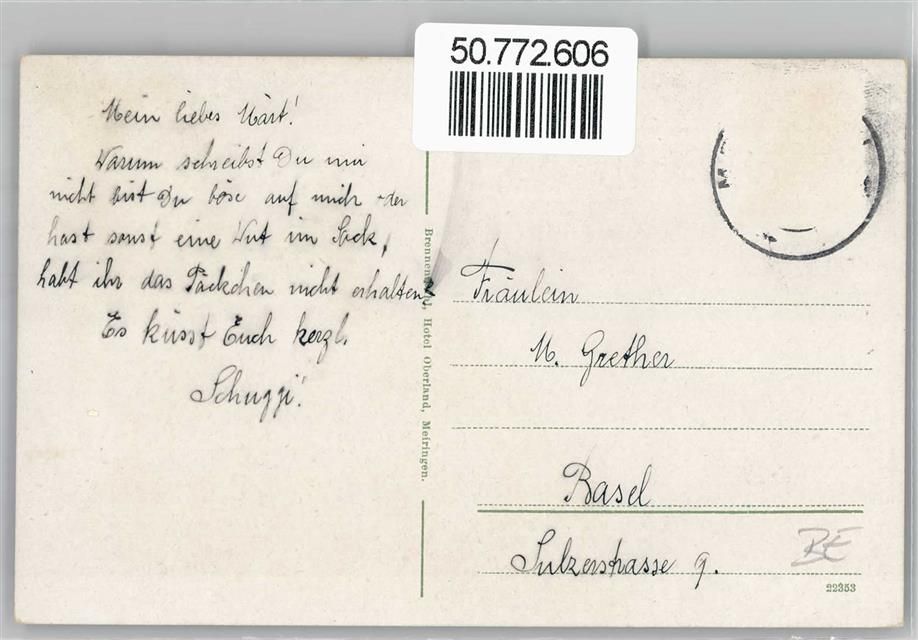 50.772.606
Mein liebes Märt!
Warum schreibst Du mir
nicht bist Du böse auf mich oder
hast sonst eine Wut im Sack,
habt ihr das Päckchen nicht erhalten?
Es küsst Euch herzl.
Schuggi!
Hotel Oberland, Meiringen.
Fräulein
M. Grether
Basel
Sulzerstrasse 9.
BE
22353